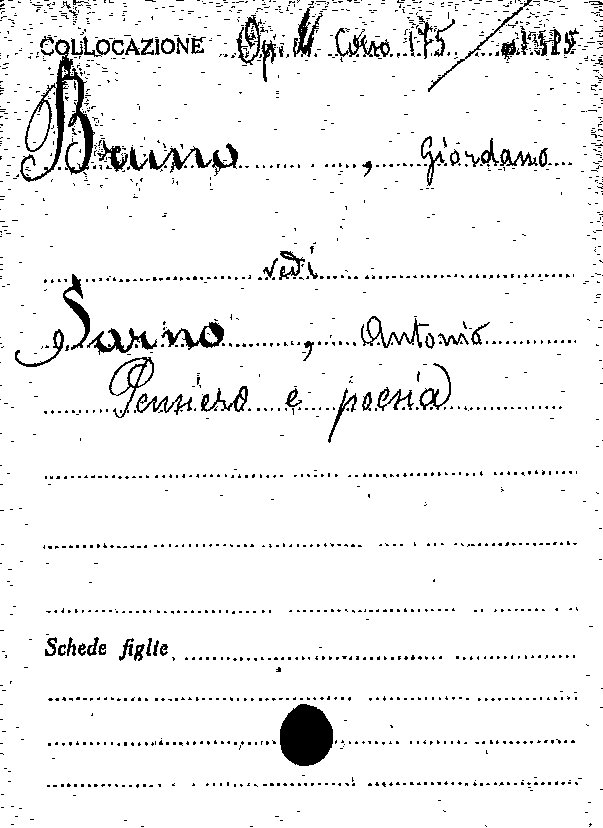 COLLOCAZIONE Op. Corso 175
Bruno, Giordano
vedi
Sarno, Antonio
Pensiero e poesia
Schede figlie